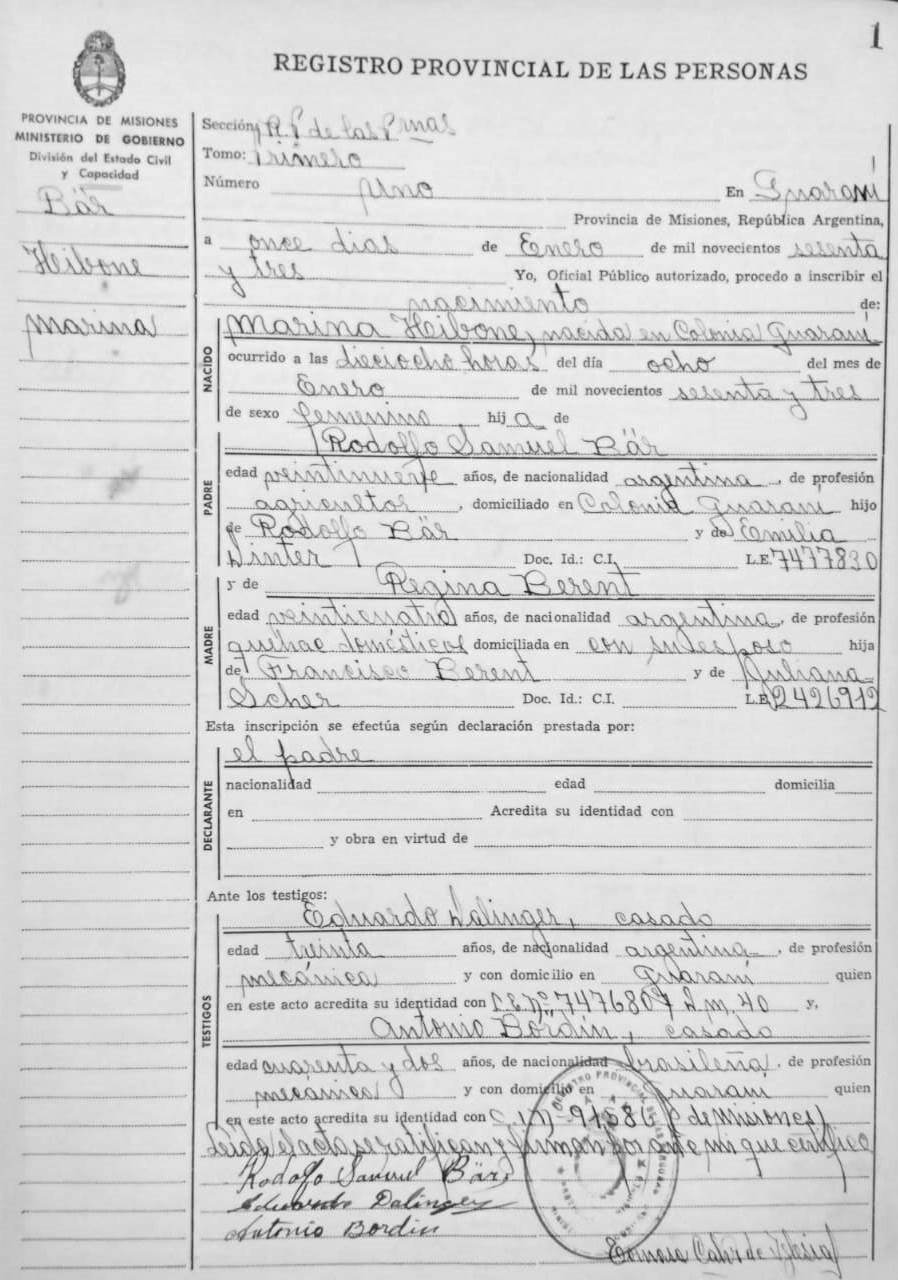 1
REGISTRO PROVINCIAL DE LAS PERSONAS
PROVINCIA DE MISIONES
MINISTERIO DE GOBIERNO
División del Estado Civil
y Capacidad
Bär
Heibone
Marina
Sección R. P. de las Prnas
Tomo: Primero
Número Uno En Guaraní
Provincia de Misiones, República Argentina,
a once dias de Enero de mil novecientos sesenta
y tres Yo, Oficial Público autorizado, procedo a inscribir el
nacimiento de:
NACIDO
Marina Heibone, nacida en Colonia Guaraní
ocurrido a las dieciocho horas del día ocho del mes de
Enero de mil novecientos sesenta y tres
de sexo femenino hij a de
PADRE
Rodolfo Samuel Bär
edad veintinueve años, de nacionalidad argentina, de profesión
agricultor, domiciliado en Colonia Guaraní hijo
de Rodolfo Bär y de Emilia
Winter Doc. Id.: C.I. L.E. 7477830
MADRE
y de Regina Berent
edad veinticuatro años, de nacionalidad argentina, de profesión
quehac domésticos domiciliada en con su esposo hija
de Francisco Berent y de Juliana
Scher Doc. Id.: C.I. L.E. 2426912
Esta inscripción se efectúa según declaración prestada por:
DECLARANTE
el padre
nacionalidad edad domicilia
en Acredita su identidad con
y obra en virtud de
Ante los testigos:
TESTIGOS
Eduardo Dalinger, casado
edad treinta años, de nacionalidad argentina, de profesión
mecánica y con domicilio en Guaraní quien
en este acto acredita su identidad con L.E. Nº 7476807 D.M. 40 y,
Antonio Bordin, casado
edad cuarenta y dos años, de nacionalidad brasileña, de profesión
mecánica y con domicilio en Guaraní quien
en este acto acredita su identidad con C.I. Nº 91586 (de Misiones)
Leída el acta se ratifican y firman por ante mi que certifico
Rodolfo Samuel Bär
Eduardo Dalinger
Antonio Bordin
REGISTRO PROVINCIAL DE LAS PERSONAS